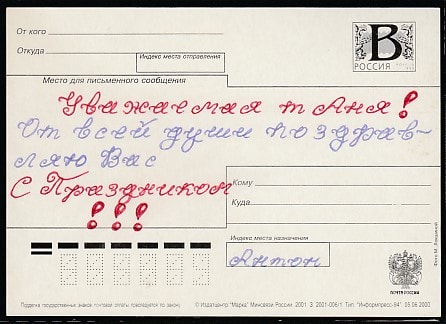 От кого
Откуда
Индекс места отправления
В
РОССИЯ
Место для письменного сообщения
Уважаемая т Аня!
От всей души поздрав-
ляю Вас
С Праздником
!!!
Кому
Куда
Индекс места назначения
Антон
ПОЧТА РОССИИ
Подделка государственных знаков почтовой оплаты преследуется по закону
© Издатцентр "Марка" Минсвязи России. 2001. З. 2001-006/1. Тип. "Информпресс-94" 05.06.2000